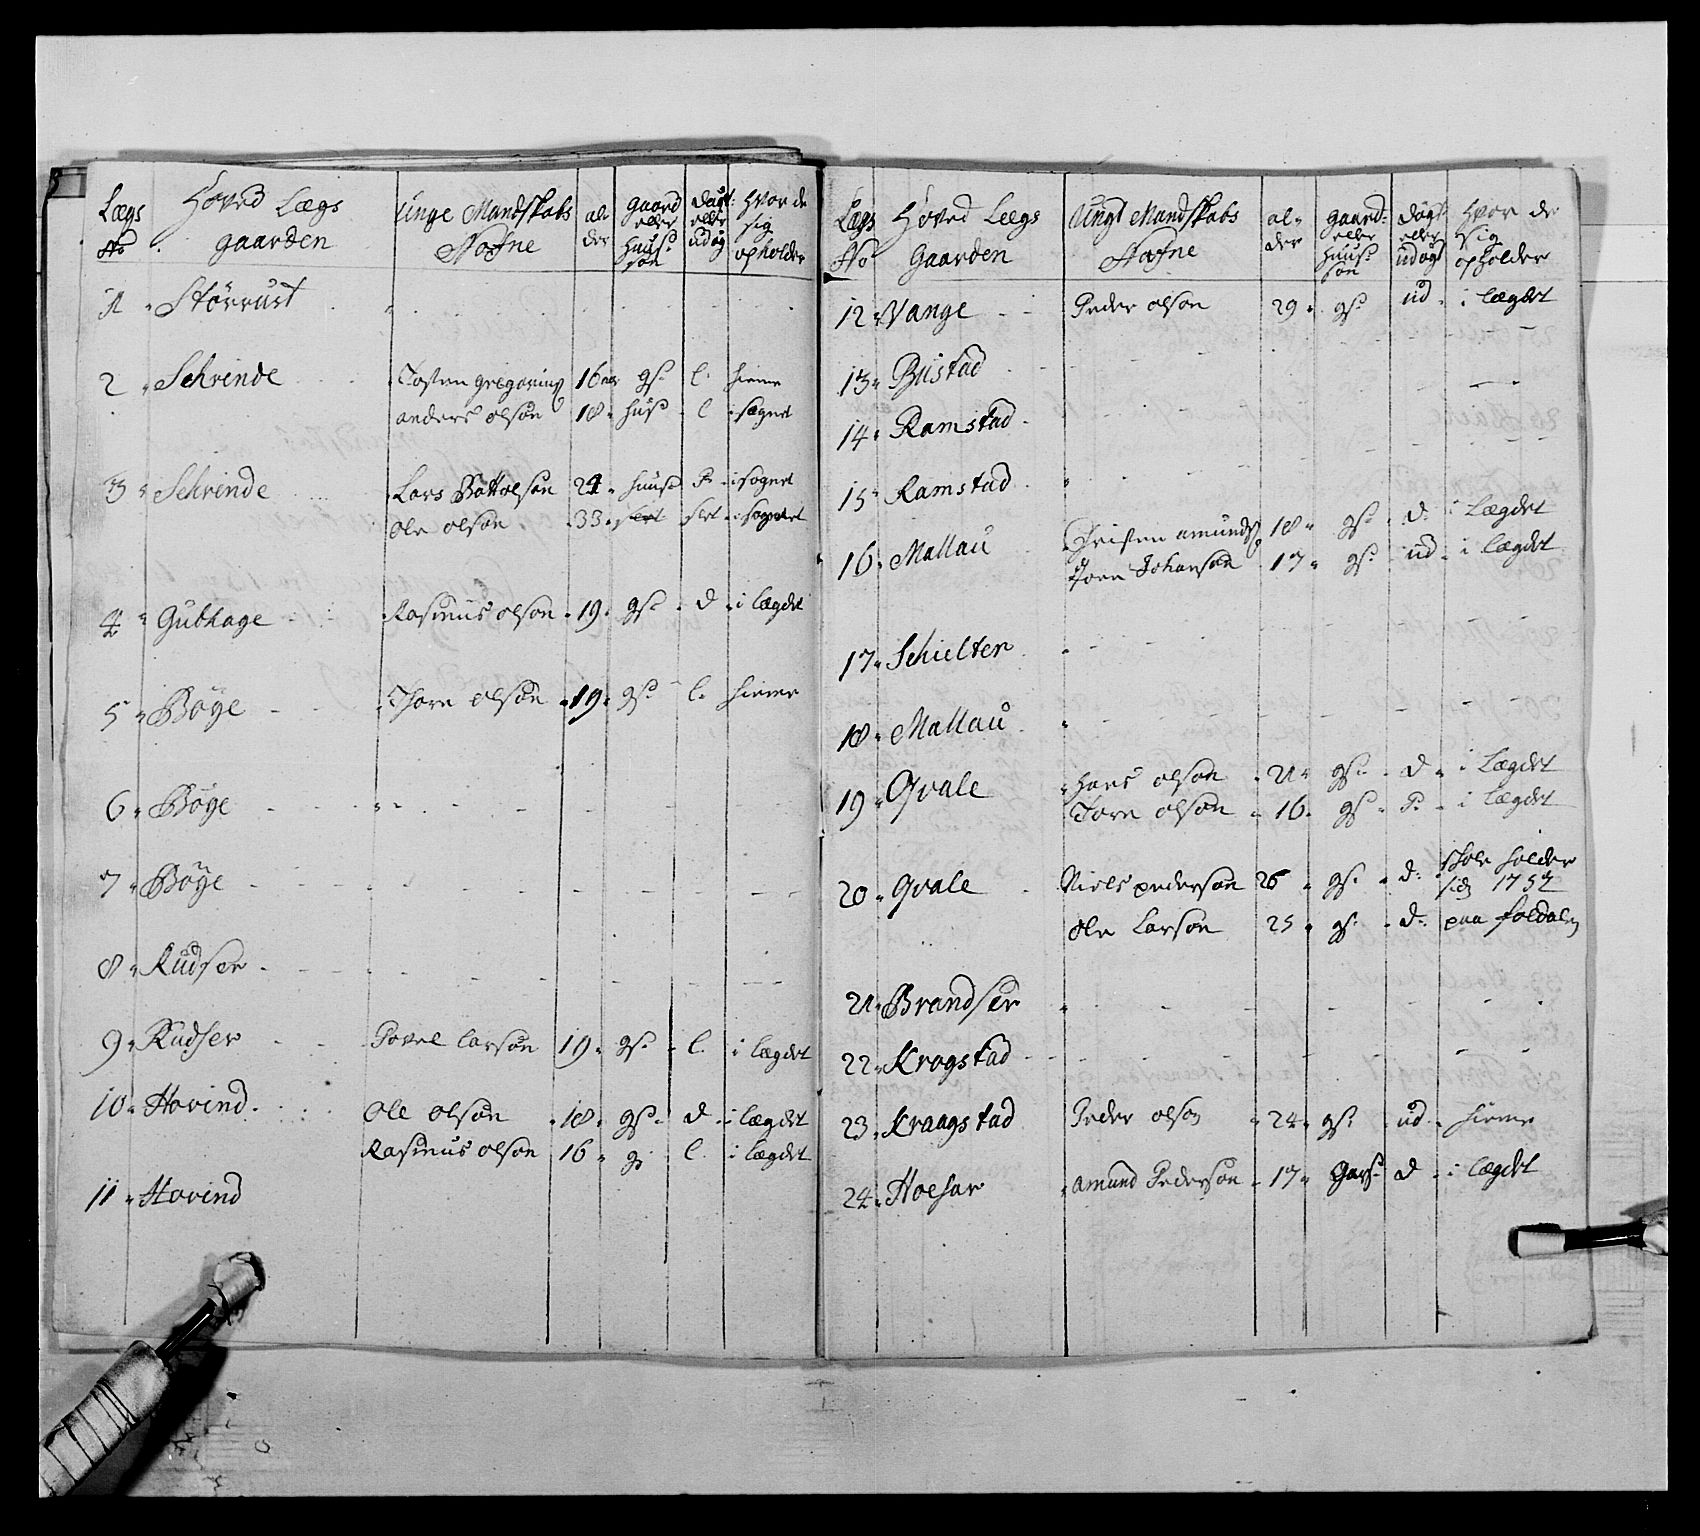 Lægs No Hoved Lægs gaarden Unge Mandskabs Nafne alder gaard eller huus: søn dügt: eller udüg hvor de sig opholder
1 Störrust
2 Schrinde Tosten gregorius 16 gs: l: hieme
anders olsøn 18 hus l i sognet
3 Schrinde Lars Bottolsøn 24 huus i sognet
Ole olsøn 33 slet slet i sognet
4 Gubhage Rasmus olsøn 19 gs: d i lægdet
5 Böye Thore olsøn 19 gs: l. hieme
6 Böye
7 Böye
8 Rudser
9 Rudser Povel larsøn 19 gs: l. i lægdet
10 Hovind Ole olsøn 18 gs: d i lægdet
Rasmus olsøn 16 g: l. i lægdet
11 Hovind
Lægs No Hoved Lægs Gaarden Ungt Mandskabs Nafne alder gaard: eller huus: søn dügt: eller udügt hvor de sig opholder
12 Vange Peder olsøn 29 gs: ud i lægdet
13 Büstad
14 Ramstad
15 Ramstad
16 Mallau Christen amunds 18 gs: d: i Lægdet
Tore Johansøn 17 gs: ud i lægdet
17 Schielter
18 Mallau
19 Qvale Hans olsøn 21 gs: d i Lægdet
Tore olsøn 16 gs i lægdet
20 Qvale Niels pedersøn 26 gs: d: skole holder
1757
Ole Larsøn 25 gs: d: paa foldalen
21 Brandser
22 Krogstad
23 Kraagstad Peder olsøn 24 gs: ud hieme
24 Hoesar amund Pedersøn 17 gars: d i lægdet